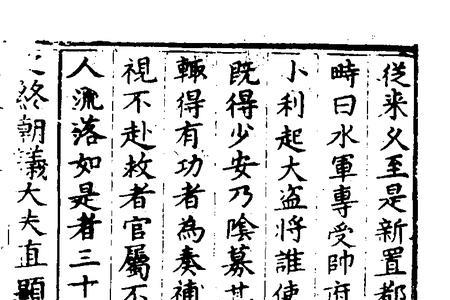 從来久至是新置都
時曰水軍專受帥府
小利起大盗將誰使
既得少安乃隂募其
輙得有功者為奏補
視不赴救者官屬不
人流落如是者三十
終朝議大夫直顯